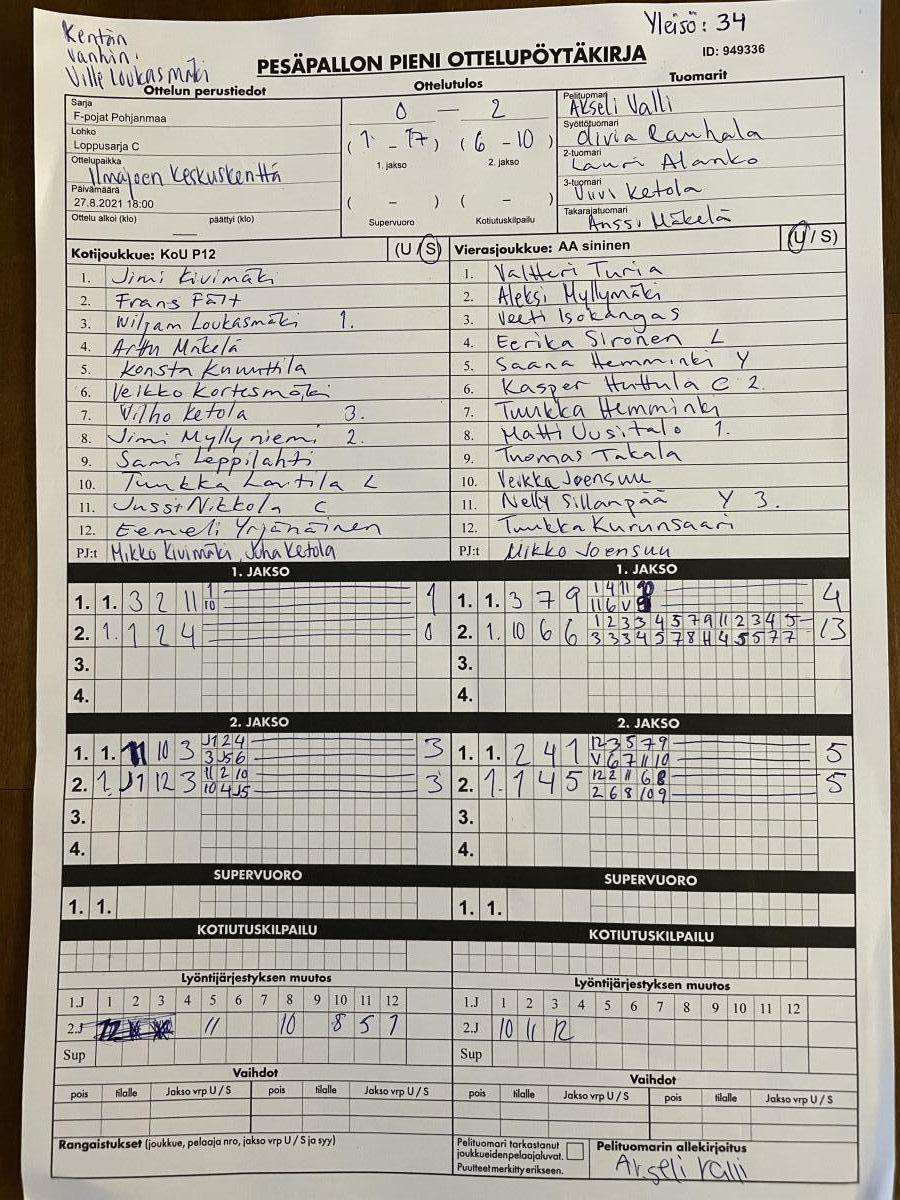 Kentän
vanhin:
Ville Loukasmäki
Yleisö: 34
PESÄPALLON PIENI OTTELUPÖYTÄKIRJA
ID: 949336
Ottelun perustiedot
Ottelutulos
Tuomarit
Sarja
F-pojat Pohjanmaa
Lohko
Loppusarja C
Ottelupaikka
Ilmajoen keskuskenttä
Päivämäärä
27.8.2021 18:00
Ottelu alkoi (klo) päättyi (klo)
0 — 2
(1 - 17) (6 - 10)
1. jakso 2. jakso
( - ) ( - )
Supervuoro Kotiutuskilpailu
Pelituomari
Akseli Valli
Syöttötuomari
Olivia Rauhala
2-tuomari
Lauri Alanko
3-tuomari
Viivi Ketola
Takarajatuomari
Anssi Mäkelä
Kotijoukkue: KoU P12 (U / S)
1. Jimi Kivimäki
2. Frans Fält
3. Wiljam Loukasmäki 1.
4. Arttu Mäkelä
5. Konsta Knuuttila
6. Veikko Kortesmäki
7. Vilho Ketola 3.
8. Jimi Myllyniemi 2.
9. Sami Leppilahti
10. Tuukka Lartila L
11. Jussi Nikkola C
12. Eemeli Yrjänäinen
PJ:t Mikko Kivimäki, Juha Ketola
Vierasjoukkue: AA sininen (U / S)
1. Valtteri Turja
2. Aleksi Myllymäki
3. Veeti Isokangas
4. Eerika Sironen L
5. Saana Hemminki Y
6. Kasper Huttula C 2.
7. Tuukka Hemminki
8. Matti Uusitalo 1.
9. Tuomas Takala
10. Veikka Joensuu
11. Nelly Sillanpää Y 3.
12. Tuukka Kurunsaari
PJ:t Mikko Joensuu
1. JAKSO
1. 1. 3 2 11 1 1
10
2. 1. 1 2 4 0
3.
4.
1. JAKSO
1. 1. 3 7 9 1 4 11 4
11 6 V
2. 1. 10 6 6 1 2 3 3 4 5 7 9 11 2 3 4 5 13
3 3 3 4 5 7 8 11 4 5 5 7 7
3.
4.
2. JAKSO
1. 1. 11 10 3 J1 2 4 3
3 J5 6
2. 1. J1 12 3 11 2 10 3
10 4 J5
3.
4.
2. JAKSO
1. 1. 2 4 1 12 3 5 7 9 5
V 6 7 11 10
2. 1. 1 4 5 12 2 11 6 8 5
2 6 8 10 9
3.
4.
SUPERVUORO
1. 1.
SUPERVUORO
1. 1.
KOTIUTUSKILPAILU
KOTIUTUSKILPAILU
Lyöntijärjestyksen muutos
1.J 1 2 3 4 5 6 7 8 9 10 11 12
2.J 11 10 8 5 7
Sup
Lyöntijärjestyksen muutos
1.J 1 2 3 4 5 6 7 8 9 10 11 12
2.J 10 11 12
Sup
Vaihdot
pois tilalle Jakso vrp U / S pois tilalle Jakso vrp U / S
Vaihdot
pois tilalle Jakso vrp U / S pois tilalle Jakso vrp U / S
Rangaistukset (joukkue, pelaaja nro, jakso vrp U / S ja syy)
Pelituomari tarkastanut
joukkueidenpelaajaluvat.
Puutteet merkitty erikseen.
Pelituomarin allekirjoitus
Akseli Valli